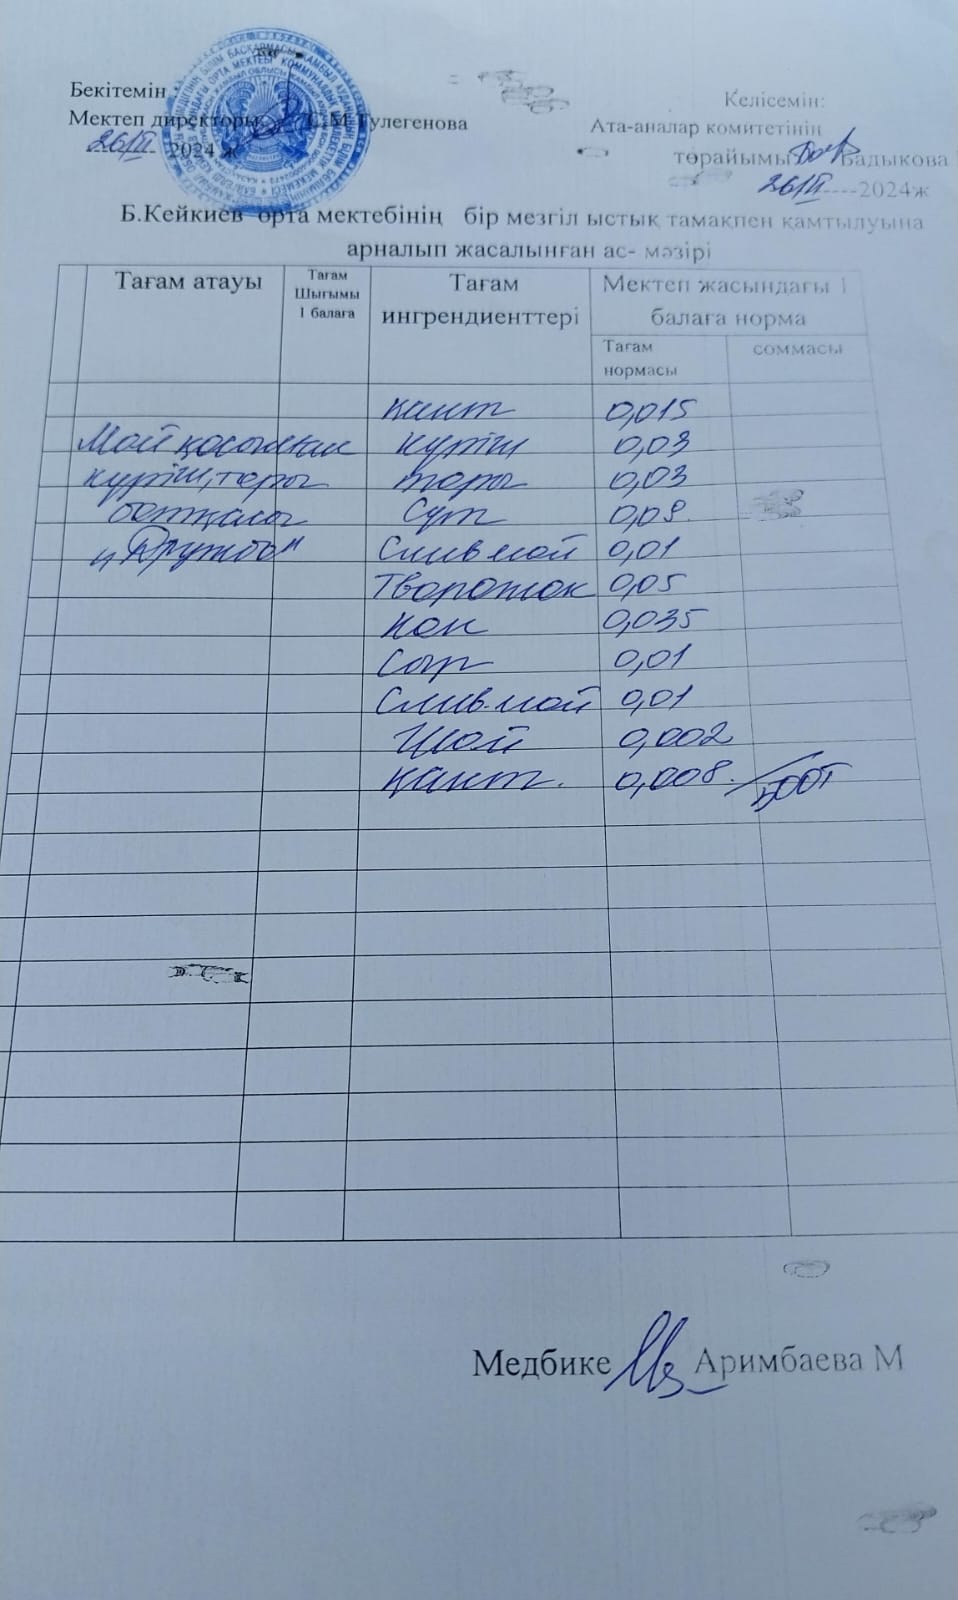 Бекітемін :
Мектеп директоры С.М Тулегенова
26/ІІ 2024 ж
Келісемін:
Ата-аналар комитетінің
төрайымы Бадыкова
26/ІІ ----2024ж
Б.Кейкиев орта мектебінің бір мезгіл ыстық тамақпен қамтылуына
арналып жасалынған ас- мәзірі
Тағам атауы
Тағам
Шығымы
1 балаға
Тағам
ингрендиенттері
Мектеп жасындағы 1
балаға норма
Тағам
нормасы
соммасы
қант 0,015
Май қосылған күріш 0,03
күріш, тары тары 0,03
ботқасы сүт 0,09
"Дружба" Слив май 0,01
Творожок 0,05
нан 0,035
Сыр 0,01
Слив.май 0,01
Шай 0,002
Қант. 0,008. 500т
Медбике Аримбаева М